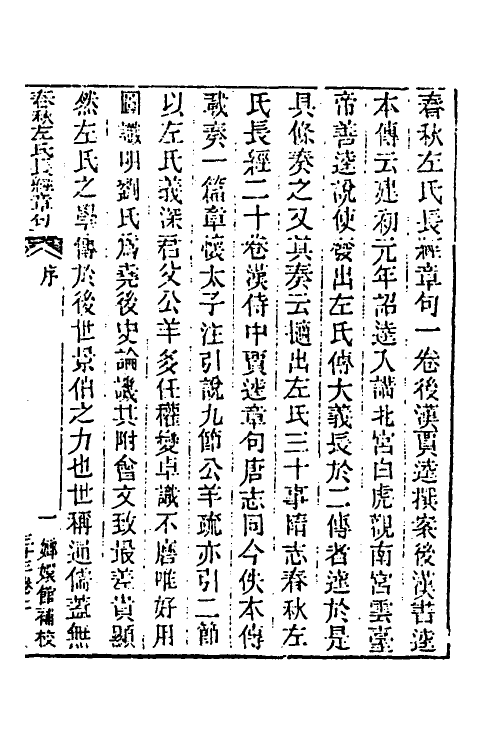 春秋左氏長經章句一卷後漢賈逵撰案後漢書逵
本傳云建初元年詔逵入講北宮白虎觀南宮雲臺
帝善逵說使發出左氏傳大義長於二傳者逵於是
具條奏之又其奏云擿出左氏三十事隋志春秋左
氏長經二十卷漢侍中賈逵章句唐志同今佚本傳
載奏一篇章懷太子注引說九節公羊疏亦引二節
以左氏義深君父公羊多任權變卓識不磨唯好用
圖讖明劉氏爲堯後史論譏其附會文致最差貴顯
然左氏之學傳於後世景伯之力也世稱通儒蓋無
春秋左氏長經章句
序
一
嫏嬛館補校